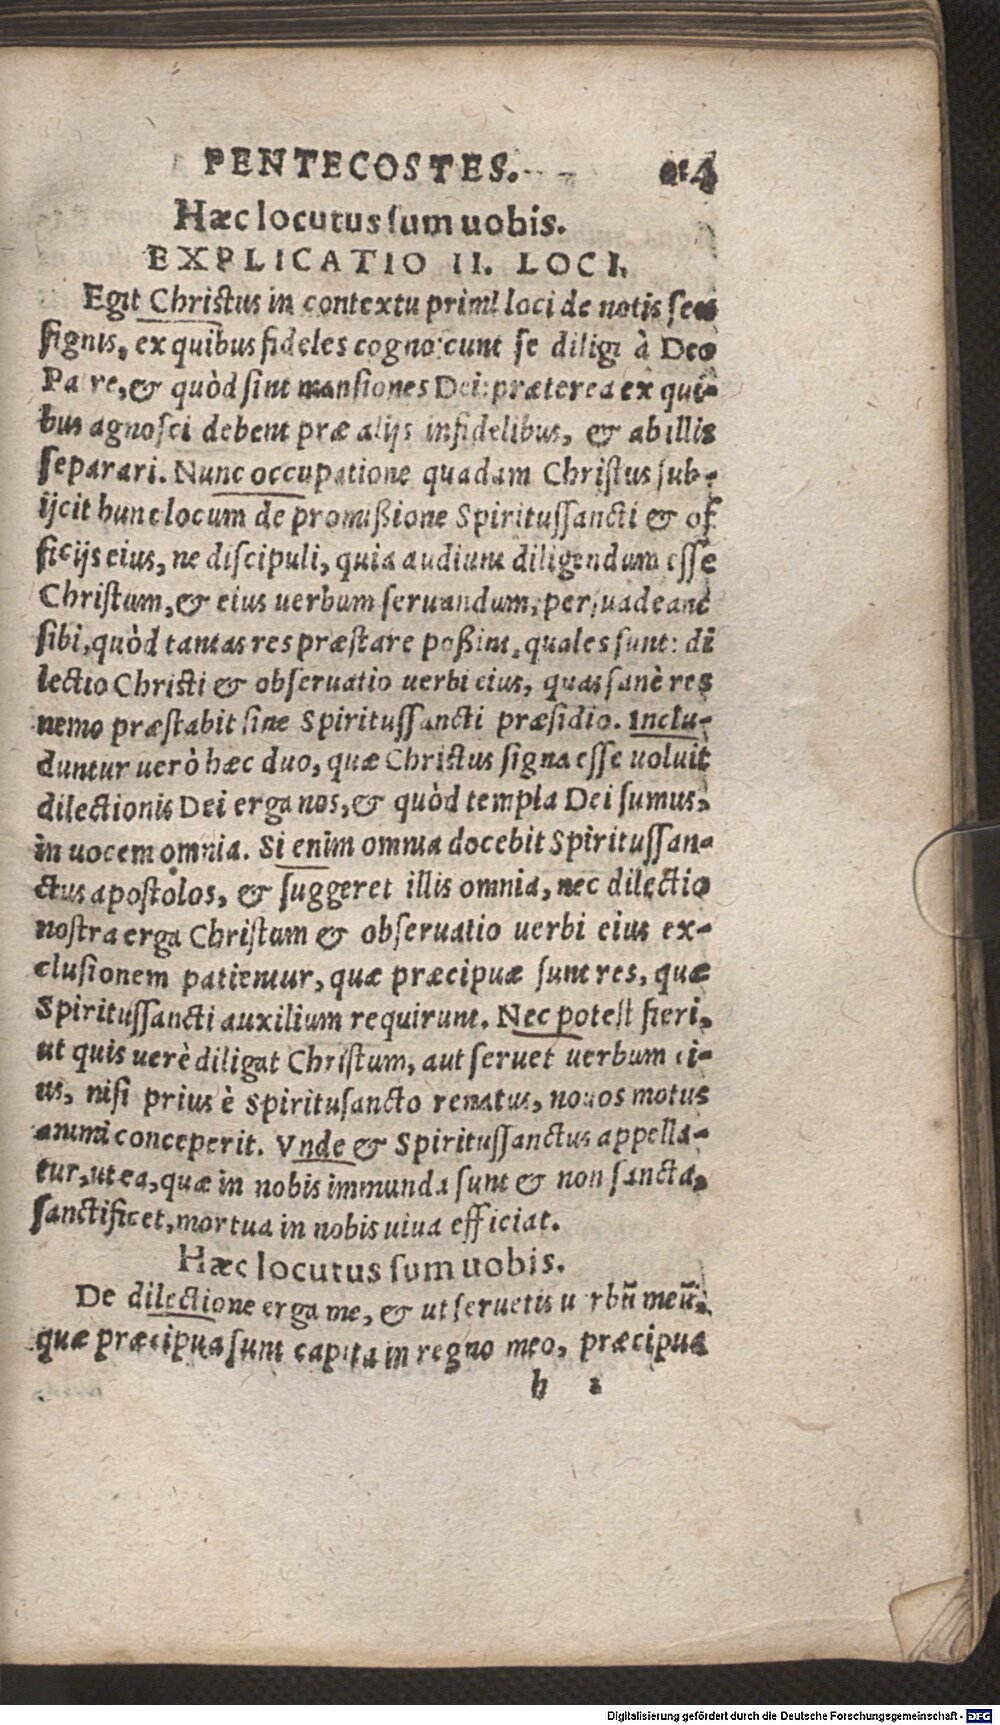 PENTECOSTES.
Hæc locutus sum uobis.
EXPLICATIO II. LOCI.
Egit Christus in contextu primi loci de notis seu
signis, ex quibus fideles cognoscunt se diligi à Deo
Patre, & quòd sint mansiones Dei: præterea ex qui-
bus agnosci debent præ alijs infidelibus, & ab illis
separari. Nunc occupatione quadam Christus sub-
ijcit hunc locum de promißione Spiritussancti & of
ficijs eius, ne discipuli, quia audiunt diligendum esse
Christum, & eius uerbum seruandum, persuadeant
sibi, quòd tantas res præstare poßint, quales sunt: di
lectio Christi & obseruatio uerbi eius, quas sanè res
nemo præstabit sine Spiritussancti præsidio. Inclu-
duntur uerò hæc duo, quæ Christus signa esse uoluit
dilectionis Dei erga nos, & quòd templa Dei sumus,
in uocem omnia. Si enim omnia docebit Spiritussan-
ctus apostolos, & suggeret illis omnia, nec dilectio
nostra erga Christum & obseruatio uerbi eius ex-
clusionem patientur, quæ præcipuæ sunt res, quæ
Spiritussancti auxilium requirunt. Nec potest fieri,
ut quis uerè diligat Christum, aut seruet uerbum ei-
us, nisi prius è Spiritusancto renatus, nouos motus
animi conceperit. Vnde & Spiritussanctus appella-
tur, ut ea, quæ in nobis immunda sunt & non sancta,
sanctificet, mortua in nobis uiua efficiat.
Hæc locutus sum uobis.
De dilectione erga me, & ut seruetis uerbũ meũ,
quæ præcipua sunt capita in regno meo, præcipua
h 2
Digitalisierung gefördert durch die Deutsche Forschungsgemeinschaft - DFG